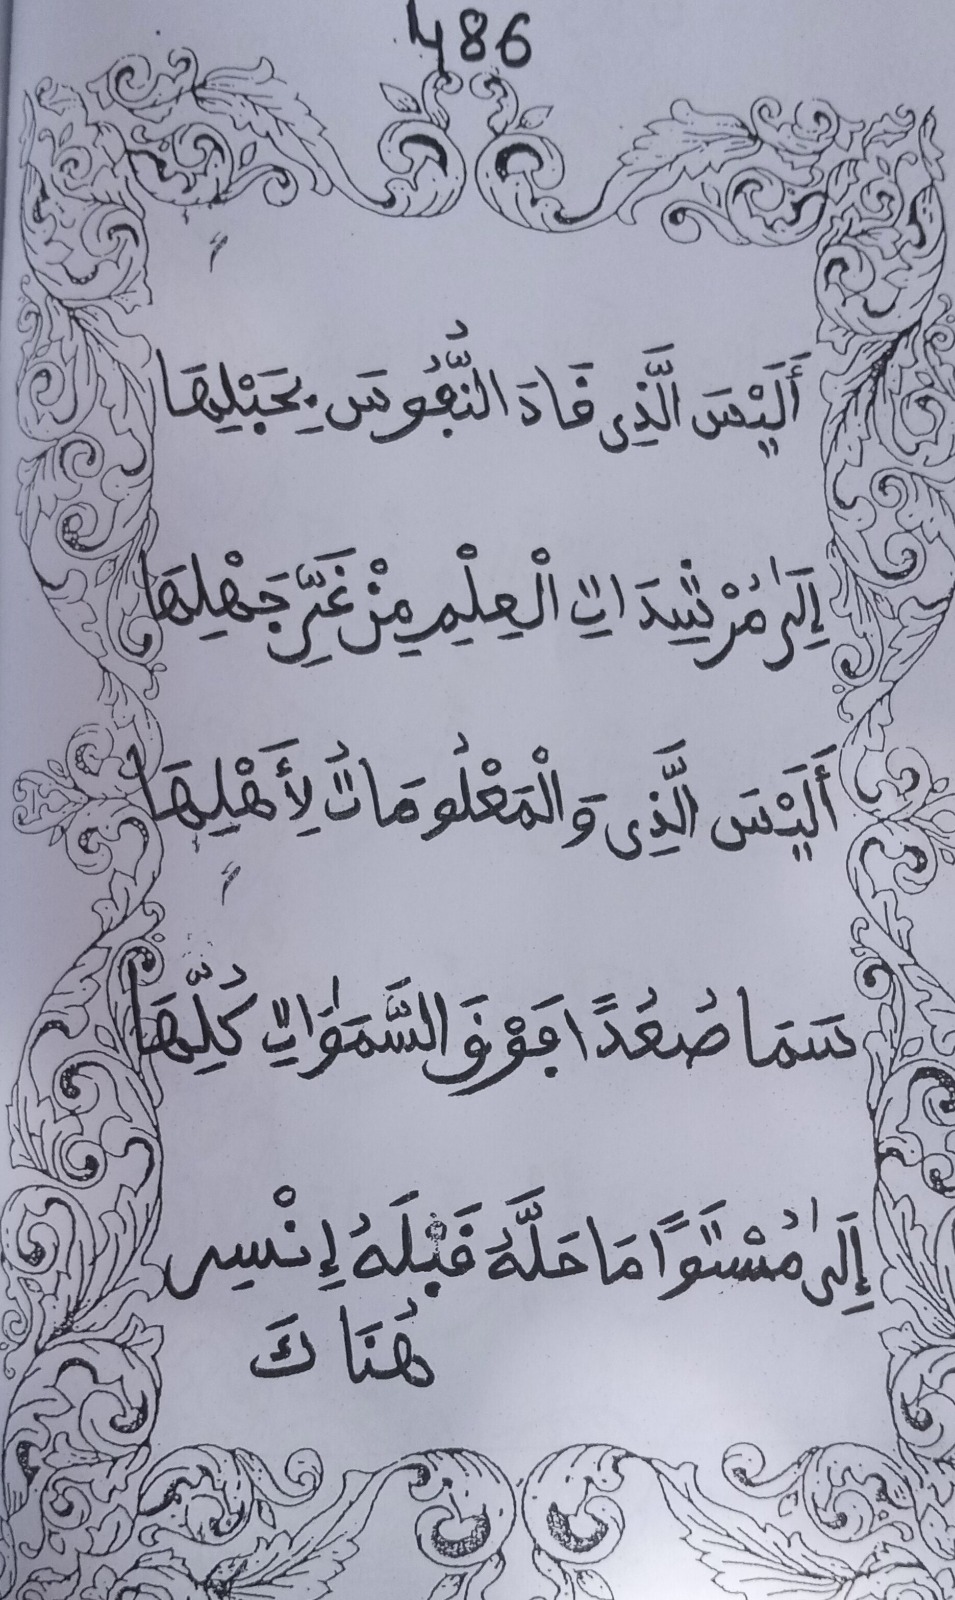 486
أَلَيْسَ الَّذِي قَادَ النُّفُوسَ بِحَبْلِهَا
إِلَى مُرْشِدَاتِ الْعِلْمِ مِنْ غَيِّ جَهْلِهَا
أَلَيْسَ الَّذِي وَالْمَعْلُومَاتُ لِأَهْلِهَا
سَمَا صُعُدًا فَوْقَ السَّمَوَاتِ كُلِّهَا
إِلَى مُسْتَوًا مَا حَلَّهُ قَبْلَهُ إِنْسِي
هُنَاكَ